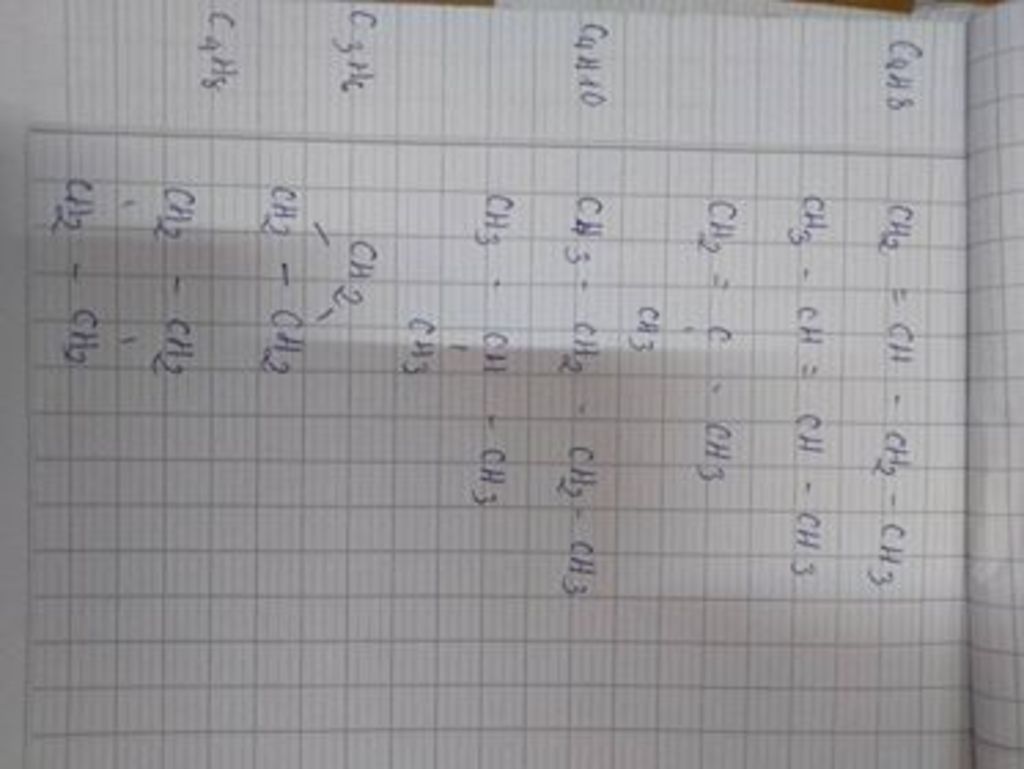 C4H8 CH2 = CH - CH2 - CH3
CH3 - CH = CH - CH3
CH2 = C - CH3
CH3
C4H10 CH3 - CH2 - CH2 - CH3
CH3 - CH - CH3
CH3
C3H6 CH2
CH2 - CH2
C4H8 CH2 - CH2
CH2 - CH2